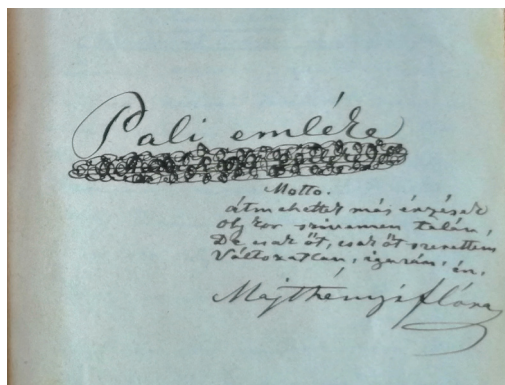 Pali emléke
Motto.
átmehettek más érzések
Oly kor szivemen talán,
De csak őt, csak őt szerettem
Változatlan, igazán, én.
Majthényi Flóra